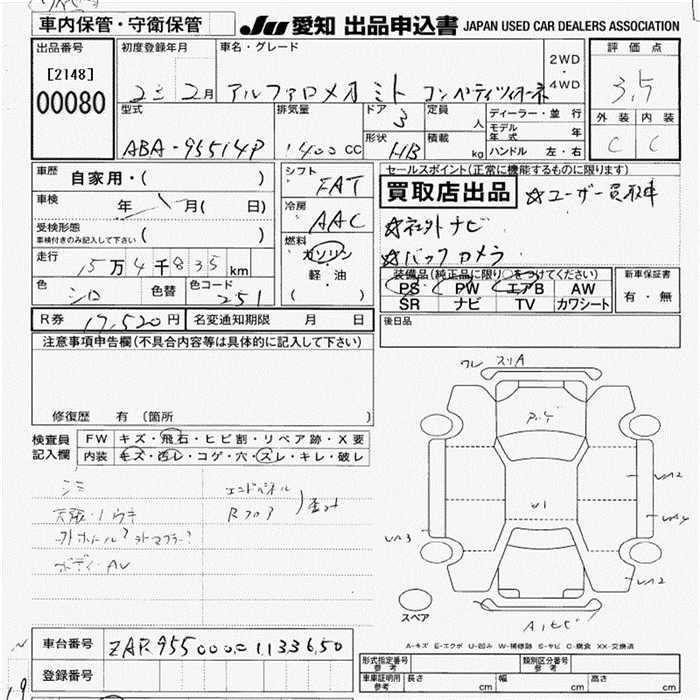 車内保管・守衛保管
JU 愛知 出品申込書 JAPAN USED CAR DEALERS ASSOCIATION
出品番号 初度登録年月 車名・グレード 2WD・4WD 評価点
[2148]
00080
23 2月 アルファロメオ ミト コンペティツィオーネ 3.5
型式 排気量 ドア 3 定員 人 ディーラー・並行 外装 内装
モデル年式 年
ABA-95514P 1400 CC 形状 HB 積載 kg ハンドル 左・右 C C
車歴 自家用・( ) シフト FAT セールスポイント(正常に機能するものに限ります)
買取店出品 ☆ユーザー買取車
車検 年 月( 日) 冷房 AAC
☆社外ナビ
受検形態
車検付きのみ記入して下さい ( ) 燃料 ガソリン
☆バックカメラ
走行 15万4千835km 軽・油
( )
装備品(純正品に限り○をつけてください) 新車保証書
PS PW エアB AW 有・無
SR ナビ TV カワシート
色 シロ 色替 色コード 251
R券 17,520円 名変通知期限 月 日 後日品
注意事項申告欄(不具合内容等は具体的に記入して下さい)
修復歴 有 (箇所 )
検査員記入欄 FW キズ・飛石・ヒビ割・リペア跡・X要
内装 キズ・凹レ・コゲ・穴・スレ・キレ・破レ
シミ エンドパネル
Rフロア
ボディ・AU
ワレ スリA
U1
UA2
UA3
UA2
スペア
A1 ヒビ
A-キズ E-エクボ U-凹み W-補修跡 S-サビ C-腐食 XX-交換済
車台番号 ZAR95500001133650
登録番号
形式指定番号 参考 類別区分番号 参考
車庫証明用 参考 長さ cm 幅 cm 高さ cm